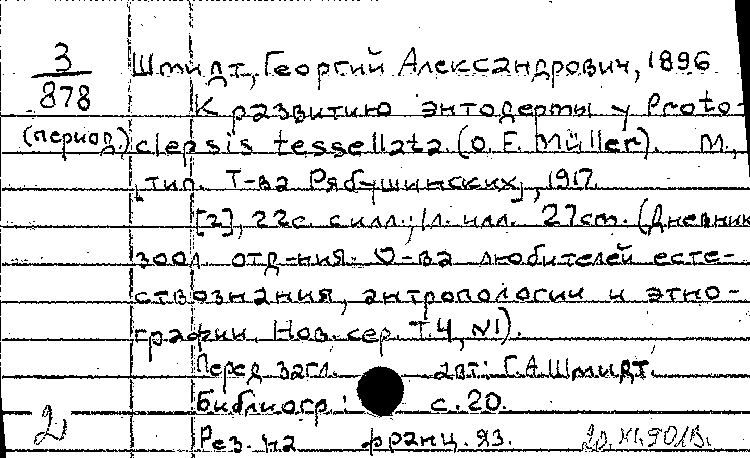 3
878
(период.)
Шмидт, Георгий Александрович, 1896
К развитию энтодермы у Proto-
clepsis tessellata (O. F. Müller). М.,
[тип. Т-ва Рябушинских], 1917.
[2], 22с. с илл.; 1л. илл. 27cm. (Дневник
зоол. отд-ния. О-ва любителей есте-
ствознания, антропологии и этно-
графии. Нов. сер. Т.4, №1).
Перед загл. авт: Г.А.Шмидт.
Библиогр.: с.20.
Рез. на франц. яз.
2
20.XI.90